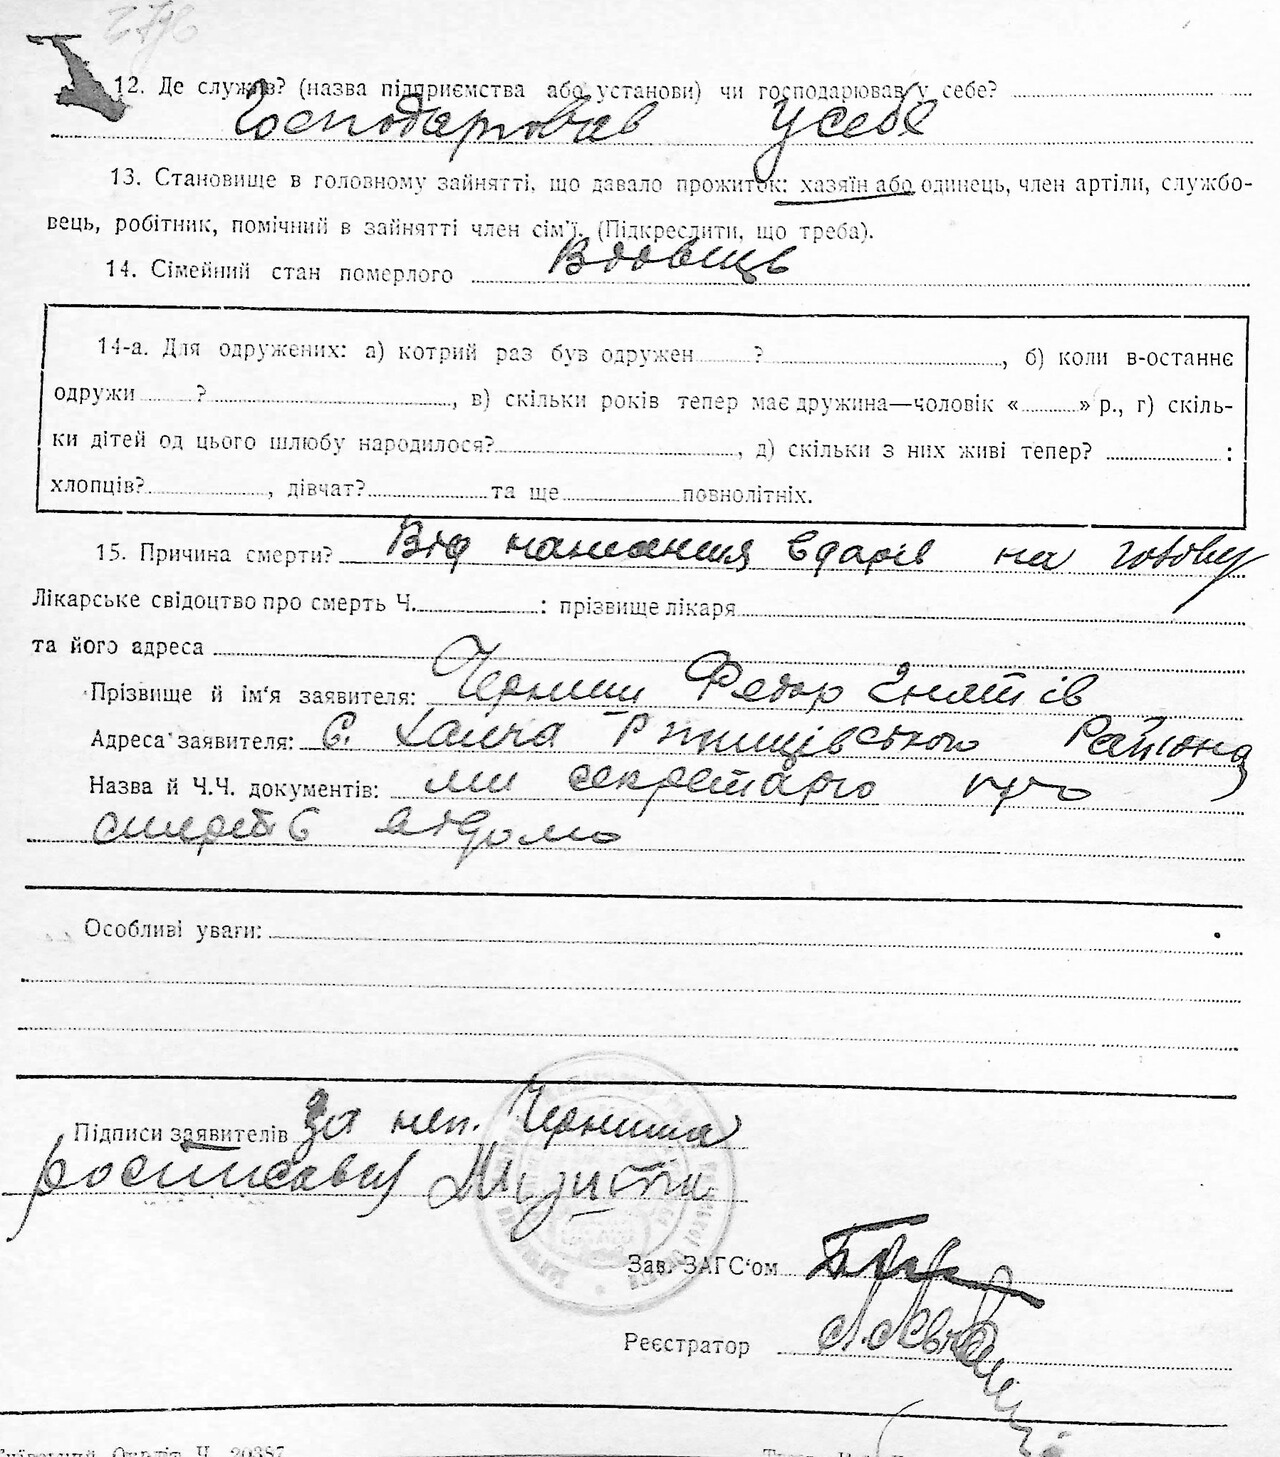 2796
12. Де служив? (назва підприємства або установи) чи господарював у себе?
Господарював у себе
13. Становище в головному зайнятті, що давало прожиток: хазяїн або одинець, член артіли, службо-
вець, робітник, помічний в зайнятті член сім'ї. (Підкреслити, що треба).
14. Сімейний стан померлого Вдовець
14-а. Для одружених: а) котрий раз був одружен ? , б) коли в-останнє
одружи ? , в) скільки років тепер має дружина—чоловік « » р., г) скіль-
ки дітей од цього шлюбу народилося? , д) скільки з них живі тепер? :
хлопців? , дівчат? та ще повнолітніх.
15. Причина смерти? Від на голову
Лікарське свідоцтво про смерть Ч. : прізвище лікаря
та його адреса
Прізвище й ім'я заявителя: Черниш Федор Гнатів
Адреса заявителя: С. Халча Ржищівського Району
Назва й Ч.Ч. документів: секретарю про
смерть відомо
Особливі уваги:
Підписи заявителів За неп. Черниша
росписався
Зав. ЗАГС'ом
Реєстратор
Київський Окрліт Ч. 20387